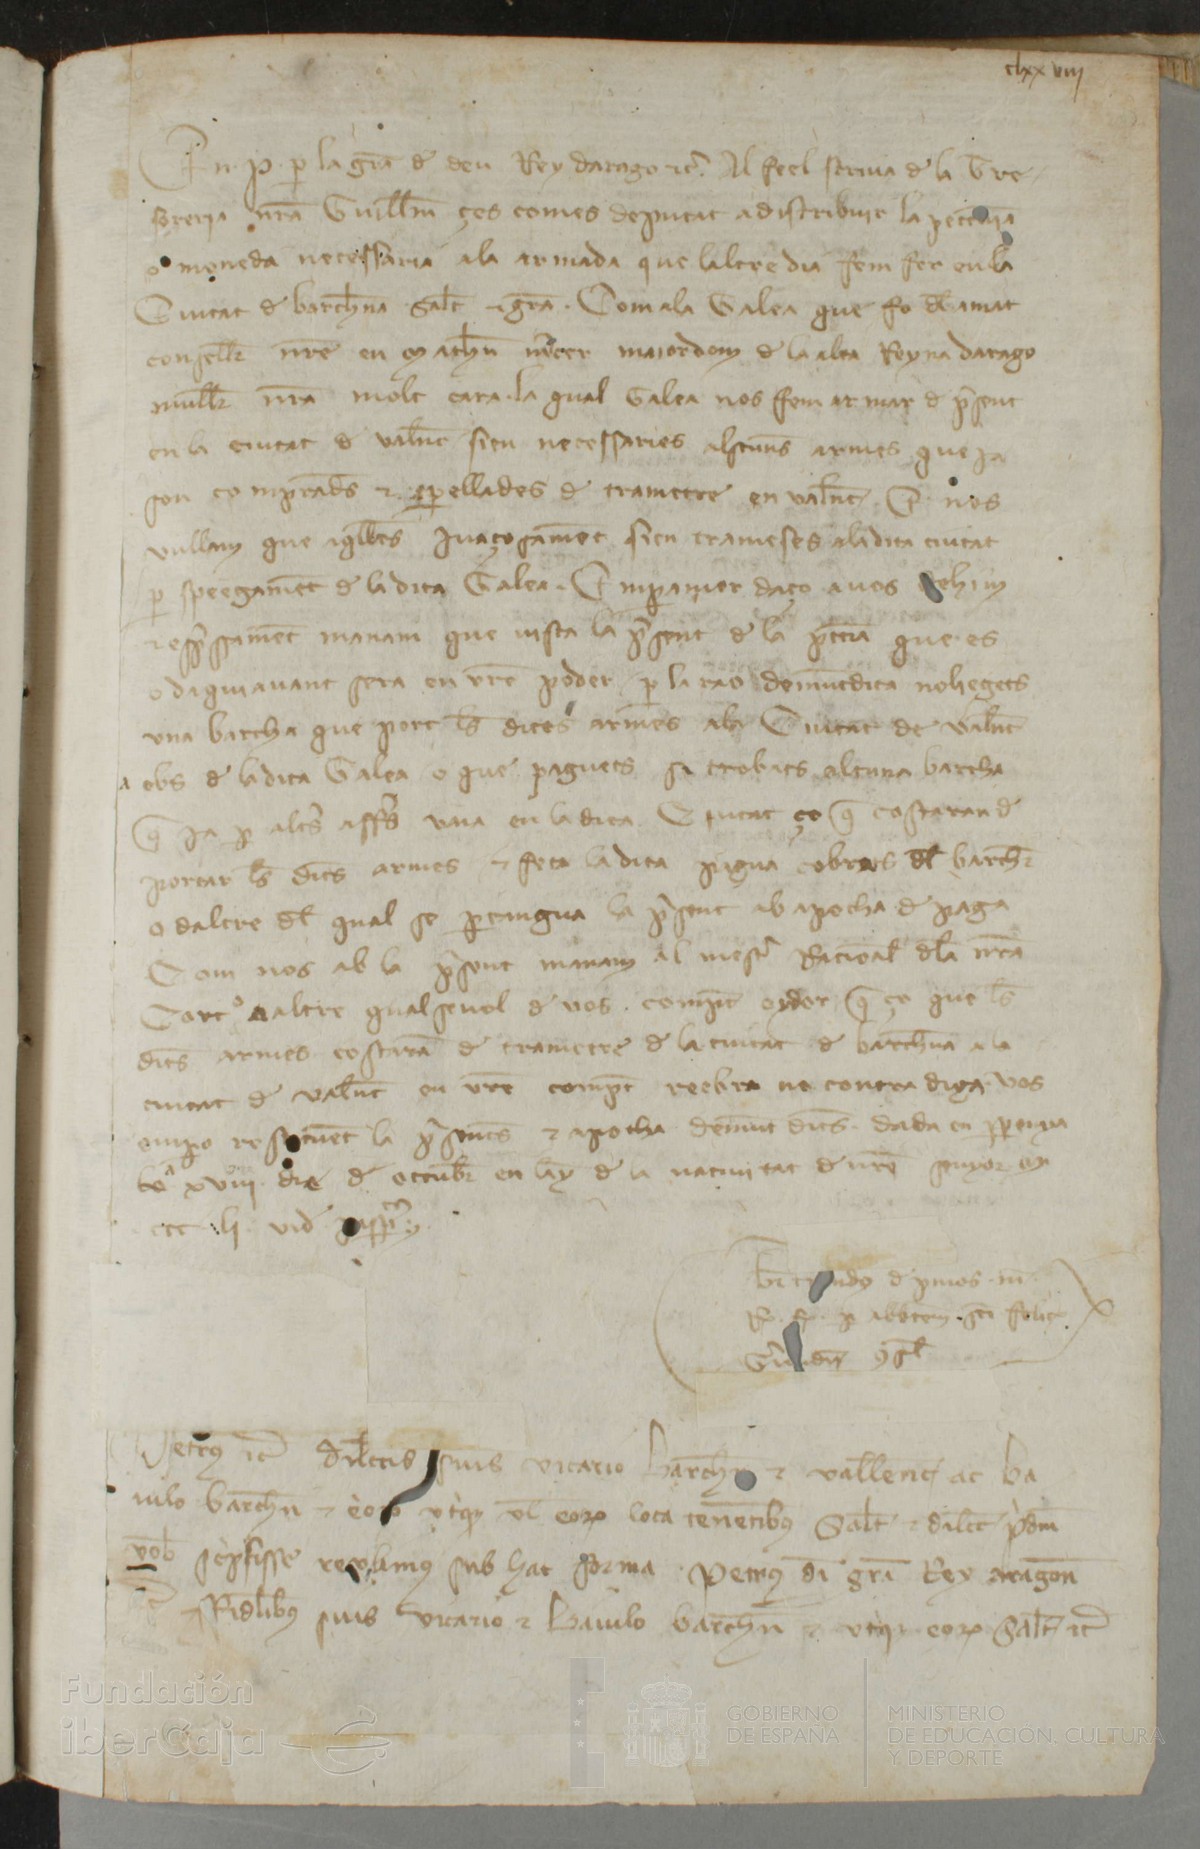 clxxviij
En .P. per la gra de deu Rey darago etc. Al feel scriva de la Tre
soreria nra Guillm ces comes deputat a distribuir la peccunia
o moneda necessaria ala armada que laltre dia fem fer en la
Ciutat de barchna Salt e gra. Com ala Galea que fo del amat
conseller nre en Mathn mercer maiordom de la alta Reyna darago
muller nra molt cara la qual Galea nos fem armar de present
en la ciutat de valnc sien necessaries alscuns armes que ja
son comprads e apellades de trametre en valnc. E nos
vullam que aqlles ivaçosament sien trameses ala dita ciutat
per speegament de la dita Galea. Emperamor daço a vos dehim
e espssament manam que vista la psent de la pccia que es
o daquiavant sera en vre poder per la rao demuntdita noliegets
una barcha que port les dites armes ala Ciutat de valnc
a obs de la dita Galea o que paguets si trobats alcuna barcha
q ja p altrs affrs vaia en la dita Ciutat ço q costaran de
portar les dits armes e feta la dita pagua cobrets del barchr
o daltre del qual se pertangua la psent ab apocha de paga
Com nos ab la psent manam al mestr Racional dela nra
Cort o a altre qualsevol de vos compt oydor q ço que les
dits armes costaran de trametre de la ciutat de barchna a la
ciutat de valnc en vre compt reebra no contradiga vos
empo restituent la psents e apocha demunt dits. dada en perpenya
xviii die de octubr en lay de la nativitat de nre senyor M
ccc li vid
de pinos m
R. p abbtem sci felic
Petrus etc dilectis suis vicario barchn e vallen ac ba
iulo barchn e eorum utriusque vel eorum loca tenentibus Salt e dilect pdm
vob scripsisse recolimus sub hac forma Petrus di gra Rex aragon
etc Fidelibus suis vicario e baiulo barchn e utriusque eorum Salt etc
Fundación
iberCaja
GOBIERNO
DE ESPAÑA
MINISTERIO
DE EDUCACIÓN, CULTURA
Y DEPORTE